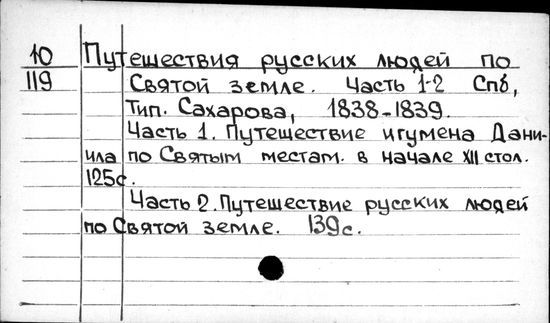 10 Путешествия русских людей по
119 Святой земле. Часть 1-2 Спб,
Тип. Сахарова, 1838-1839.
Часть 1. Путешествие игумена Дани-
ила по Святым местам. в начале XII стол.
125с.
Часть 2. Путешествие русских людей
по Святой земле. 139с.